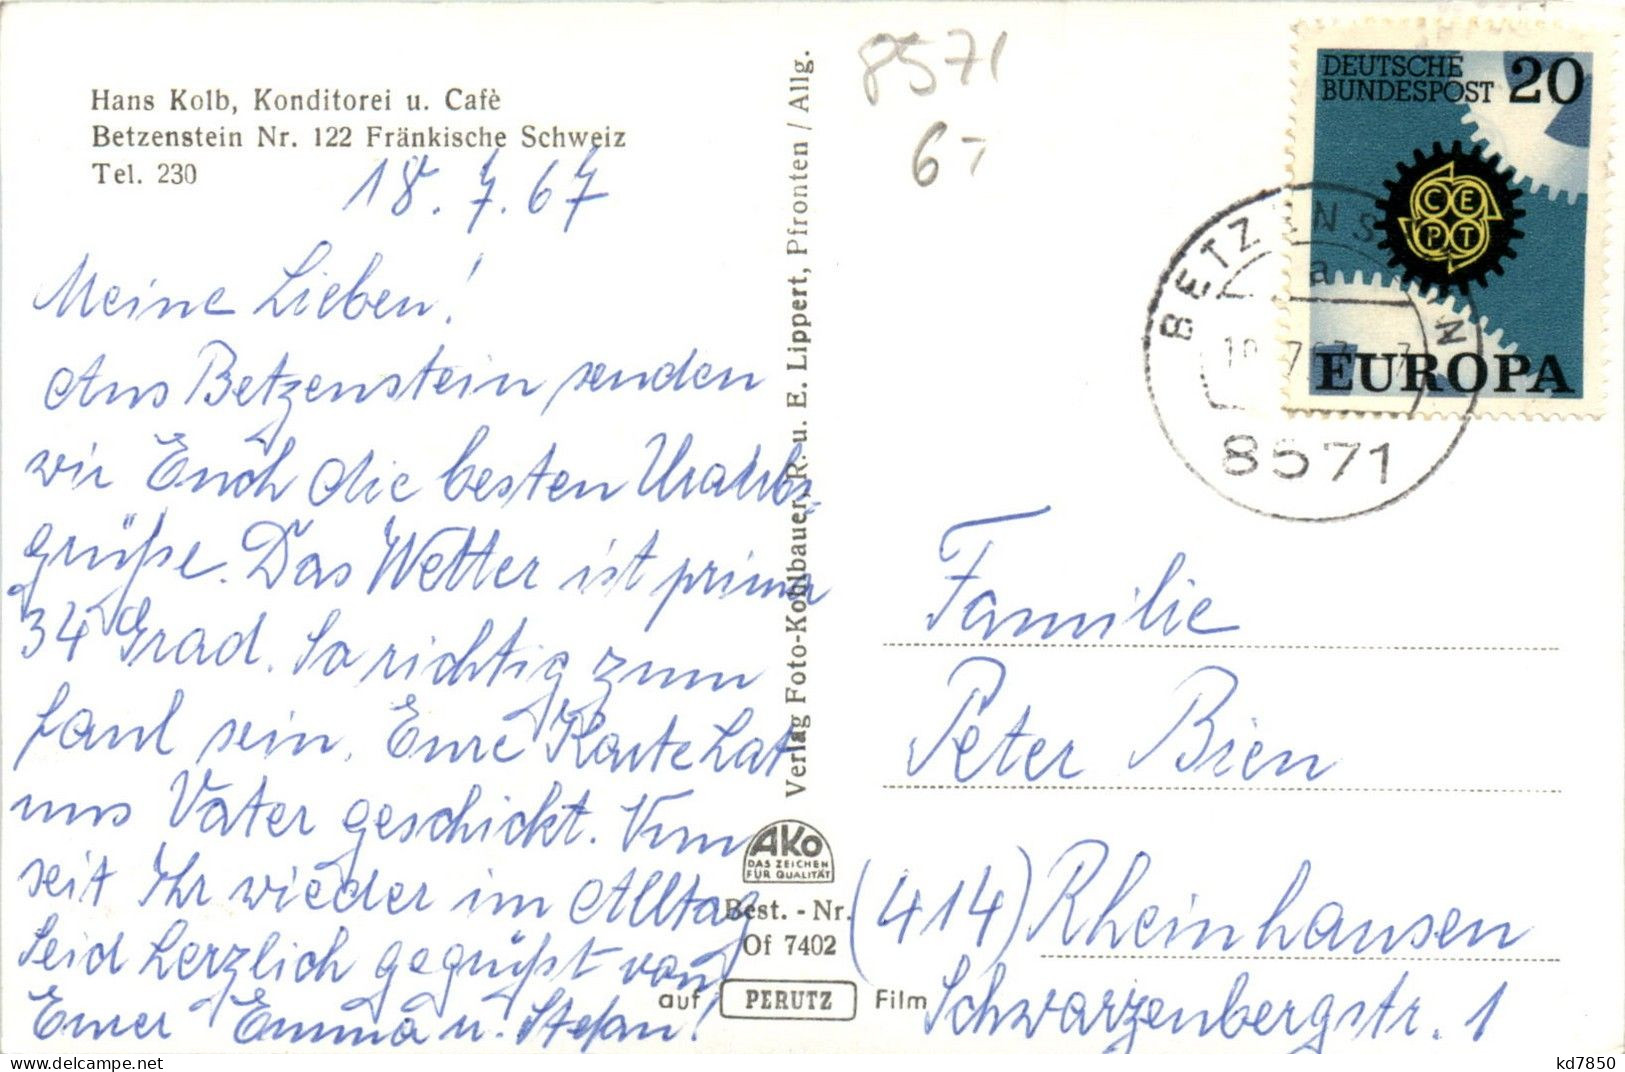 Hans Kolb, Konditorei u. Cafè
Betzenstein Nr. 122 Fränkische Schweiz
Tel. 230
18. 7. 67
Meine Lieben!
Aus Betzenstein senden
wir Euch die besten Urlaubs-
grüße. Das Wetter ist prima
34 Grad. So richtig zum
faul sein. Eure Karte hat
uns Vater geschickt. Nun
seit Ihr wieder im Alltag
Seid herzlich gegrüßt von
Eurer Emma u. Stefan!
Verlag Foto-Kohlbauer, R. u. E. Lippert, Pfronten / Allg.
AKO
DAS ZEICHEN
FÜR QUALITÄT
Best. - Nr.
Of 7402
auf PERUTZ Film
8571
67
DEUTSCHE
BUNDESPOST 20
CEPT
EUROPA
BETZENSTEIN
a
8571
Familie
Peter Bien
(414) Rheinhausen
Schwarzenbergstr. 1
www.delcampe.net
kd7850